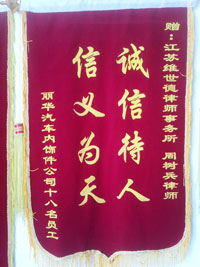 赠：江苏维世德律师事务所 周树兵律师
诚信待人
信义为天
丽华汽车内饰件公司十八名员工